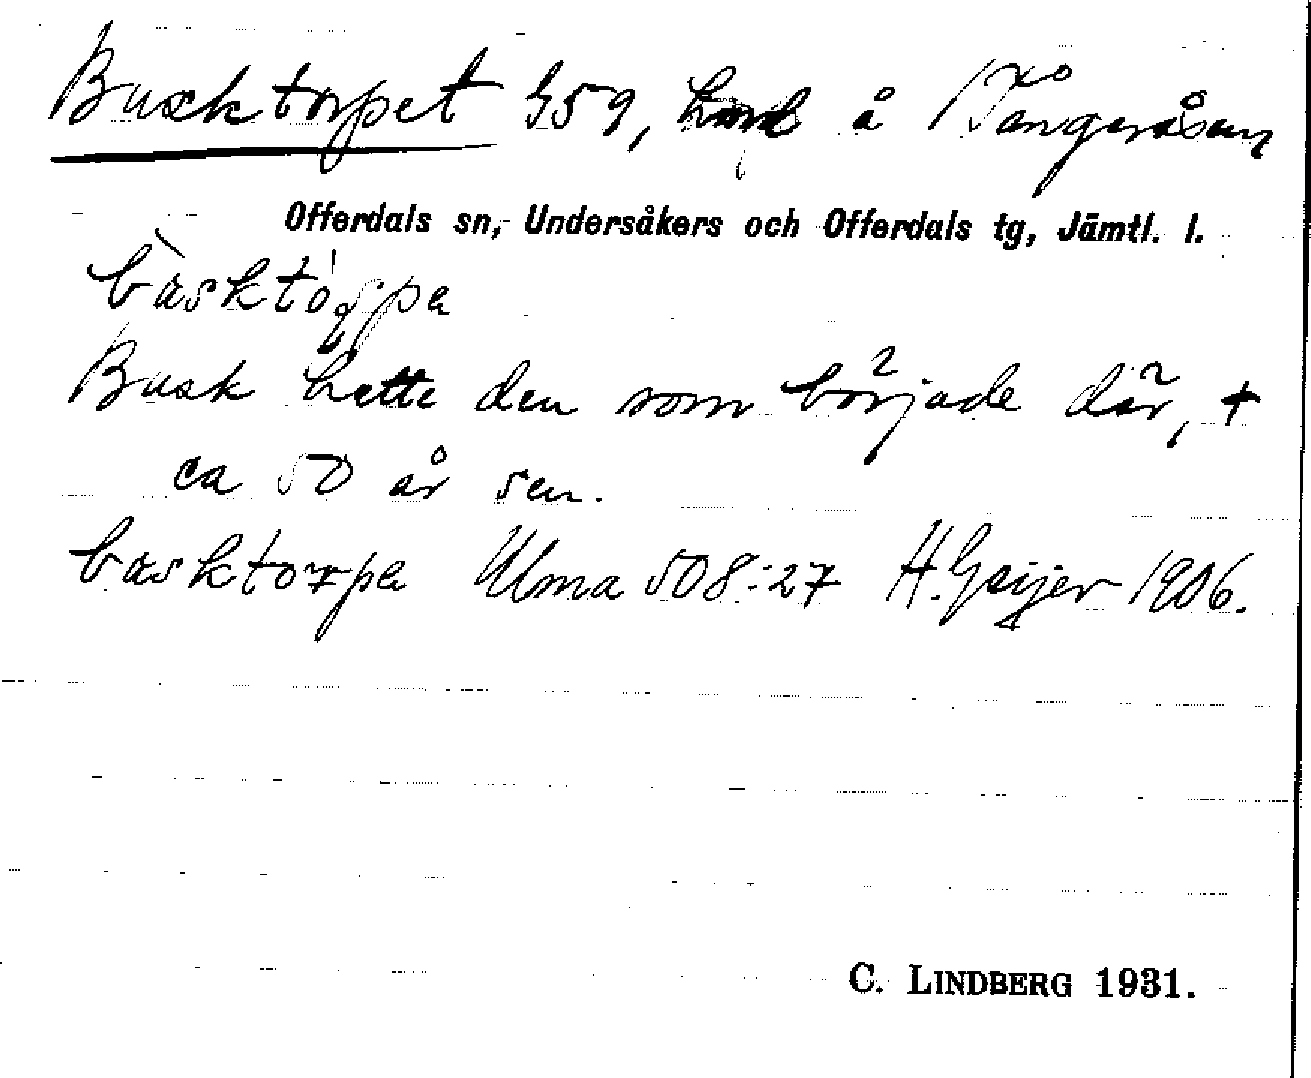 Busktorpet 359, å Tångeråsen
Offerdals sn, Undersåkers och Offerdals tg, Jämtl. l.
Busk hette den som började där, +
ca 50 år sen.
basktorpa Ulma 508:27 H. Geijer 1906.
C. LINDBERG 1931.